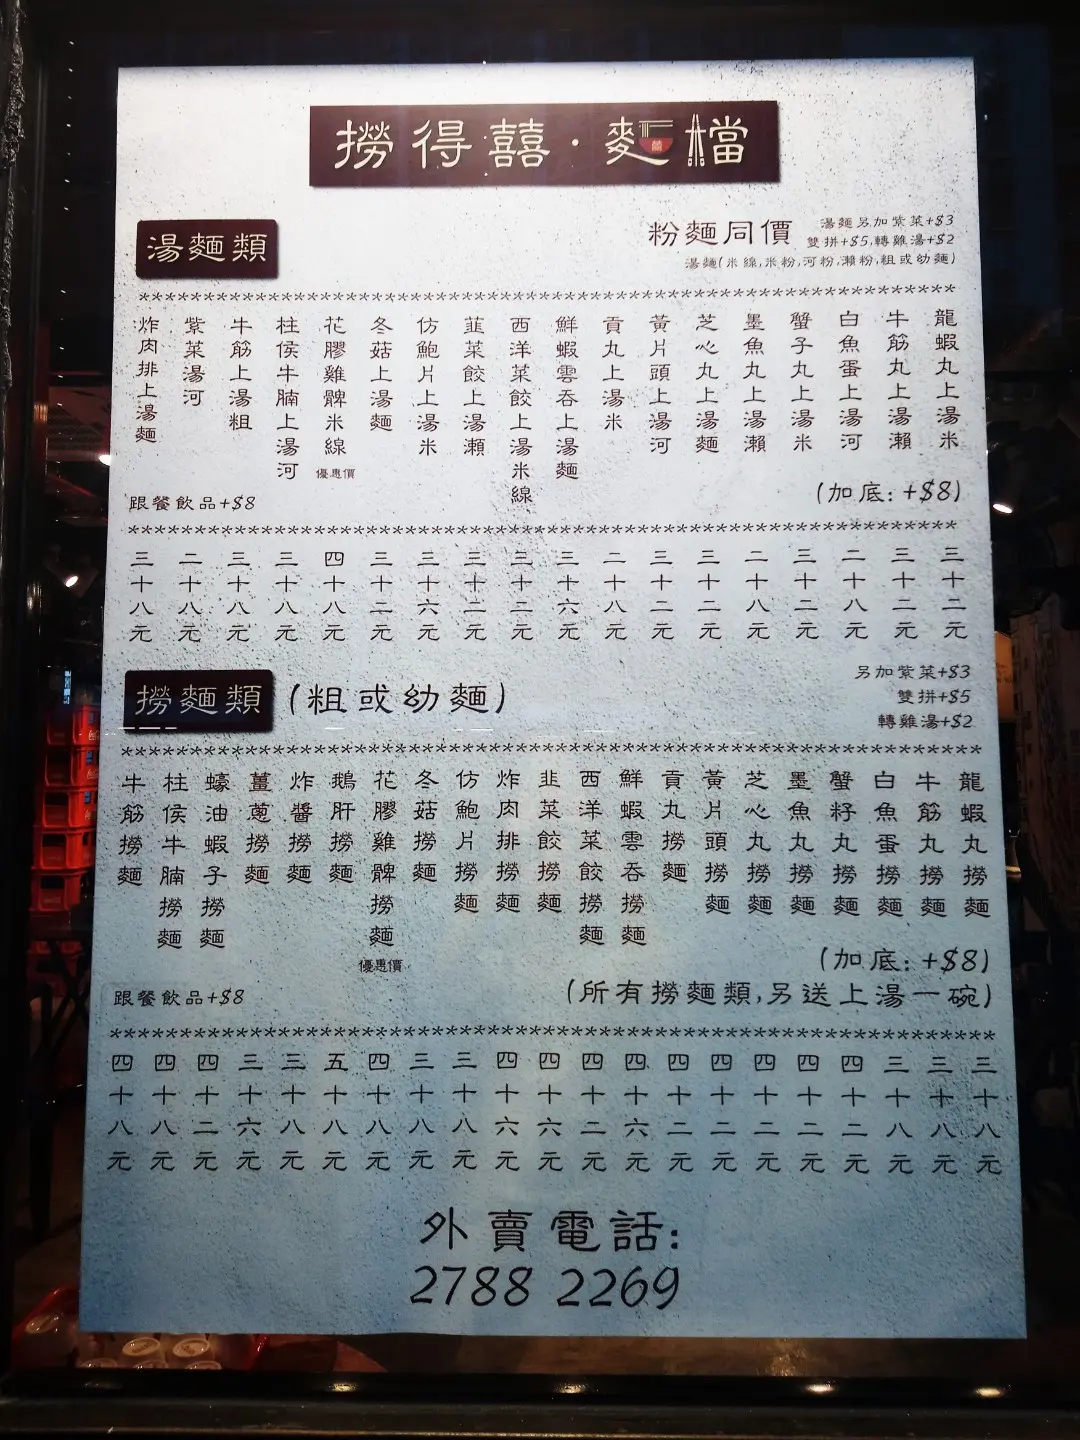 撈得囍·麵檔
湯麵類
粉麵同價
湯麵另加紫菜+$3
雙拼+$5,轉雞湯+$2
湯麵(米線,米粉,河粉,瀨粉,粗或幼麵)
龍蝦丸上湯米
牛筋丸上湯瀨
白魚蛋上湯河
蟹子丸上湯米
墨魚丸上湯瀨
芝心丸上湯麵
黃片頭上湯河
貢丸上湯米
鮮蝦雲吞上湯麵
西洋菜餃上湯米線
韮菜餃上湯瀨
仿鮑片上湯米
冬菇上湯麵
花膠雞髀米線
優惠價
柱侯牛腩上湯河
牛筋上湯粗
紫菜湯河
炸肉排上湯麵
(加底: +$8)
跟餐飲品+$8
三十二元
三十二元
二十八元
三十二元
二十八元
三十二元
三十二元
二十八元
三十六元
三十二元
三十二元
三十六元
三十二元
四十八元
三十八元
三十八元
二十八元
三十八元
撈麵類
(粗或幼麵)
另加紫菜+$3
雙拼+$5
轉雞湯+$2
龍蝦丸撈麵
牛筋丸撈麵
白魚蛋撈麵
蟹籽丸撈麵
墨魚丸撈麵
芝心丸撈麵
黃片頭撈麵
貢丸撈麵
鮮蝦雲吞撈麵
西洋菜餃撈麵
韭菜餃撈麵
炸肉排撈麵
仿鮑片撈麵
冬菇撈麵
花膠雞髀撈麵
優惠價
鵝肝撈麵
炸醬撈麵
薑蔥撈麵
蠔油蝦子撈麵
柱侯牛腩撈麵
牛筋撈麵
(加底: +$8)
(所有撈麵類,另送上湯一碗)
跟餐飲品+$8
三十八元
三十八元
三十八元
四十二元
四十二元
四十二元
四十二元
四十二元
四十六元
四十二元
四十六元
四十六元
三十八元
三十八元
四十八元
五十八元
三十八元
三十六元
四十二元
四十八元
四十八元
外賣電話:
2788 2269